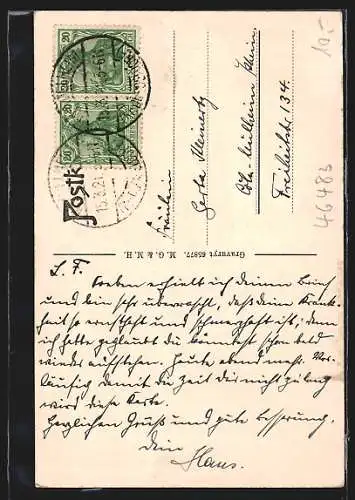 10,-
46483
Postk
20
20
15.3.21
Fräulein
Gerta Meinertz
Cöln-Mülheim Rhein
Freiheitstr 134
Gravuryt 65877. M. G. & M. H.
L. F. Soeben erhielt ich deinen Brief
und bin sehr überrascht, daß deine Krank-
heit so ernsthaft und schmerzhaft ist, denn
ich hatte geglaubt du könntest schon bald
wieder aufstehen. Heute abend mehr. Vor-
läufig damit du Zeit dir nicht zu lang
wird diese Karte.
Herzlichen Gruß und gute Besserung.
Dein
Hans.